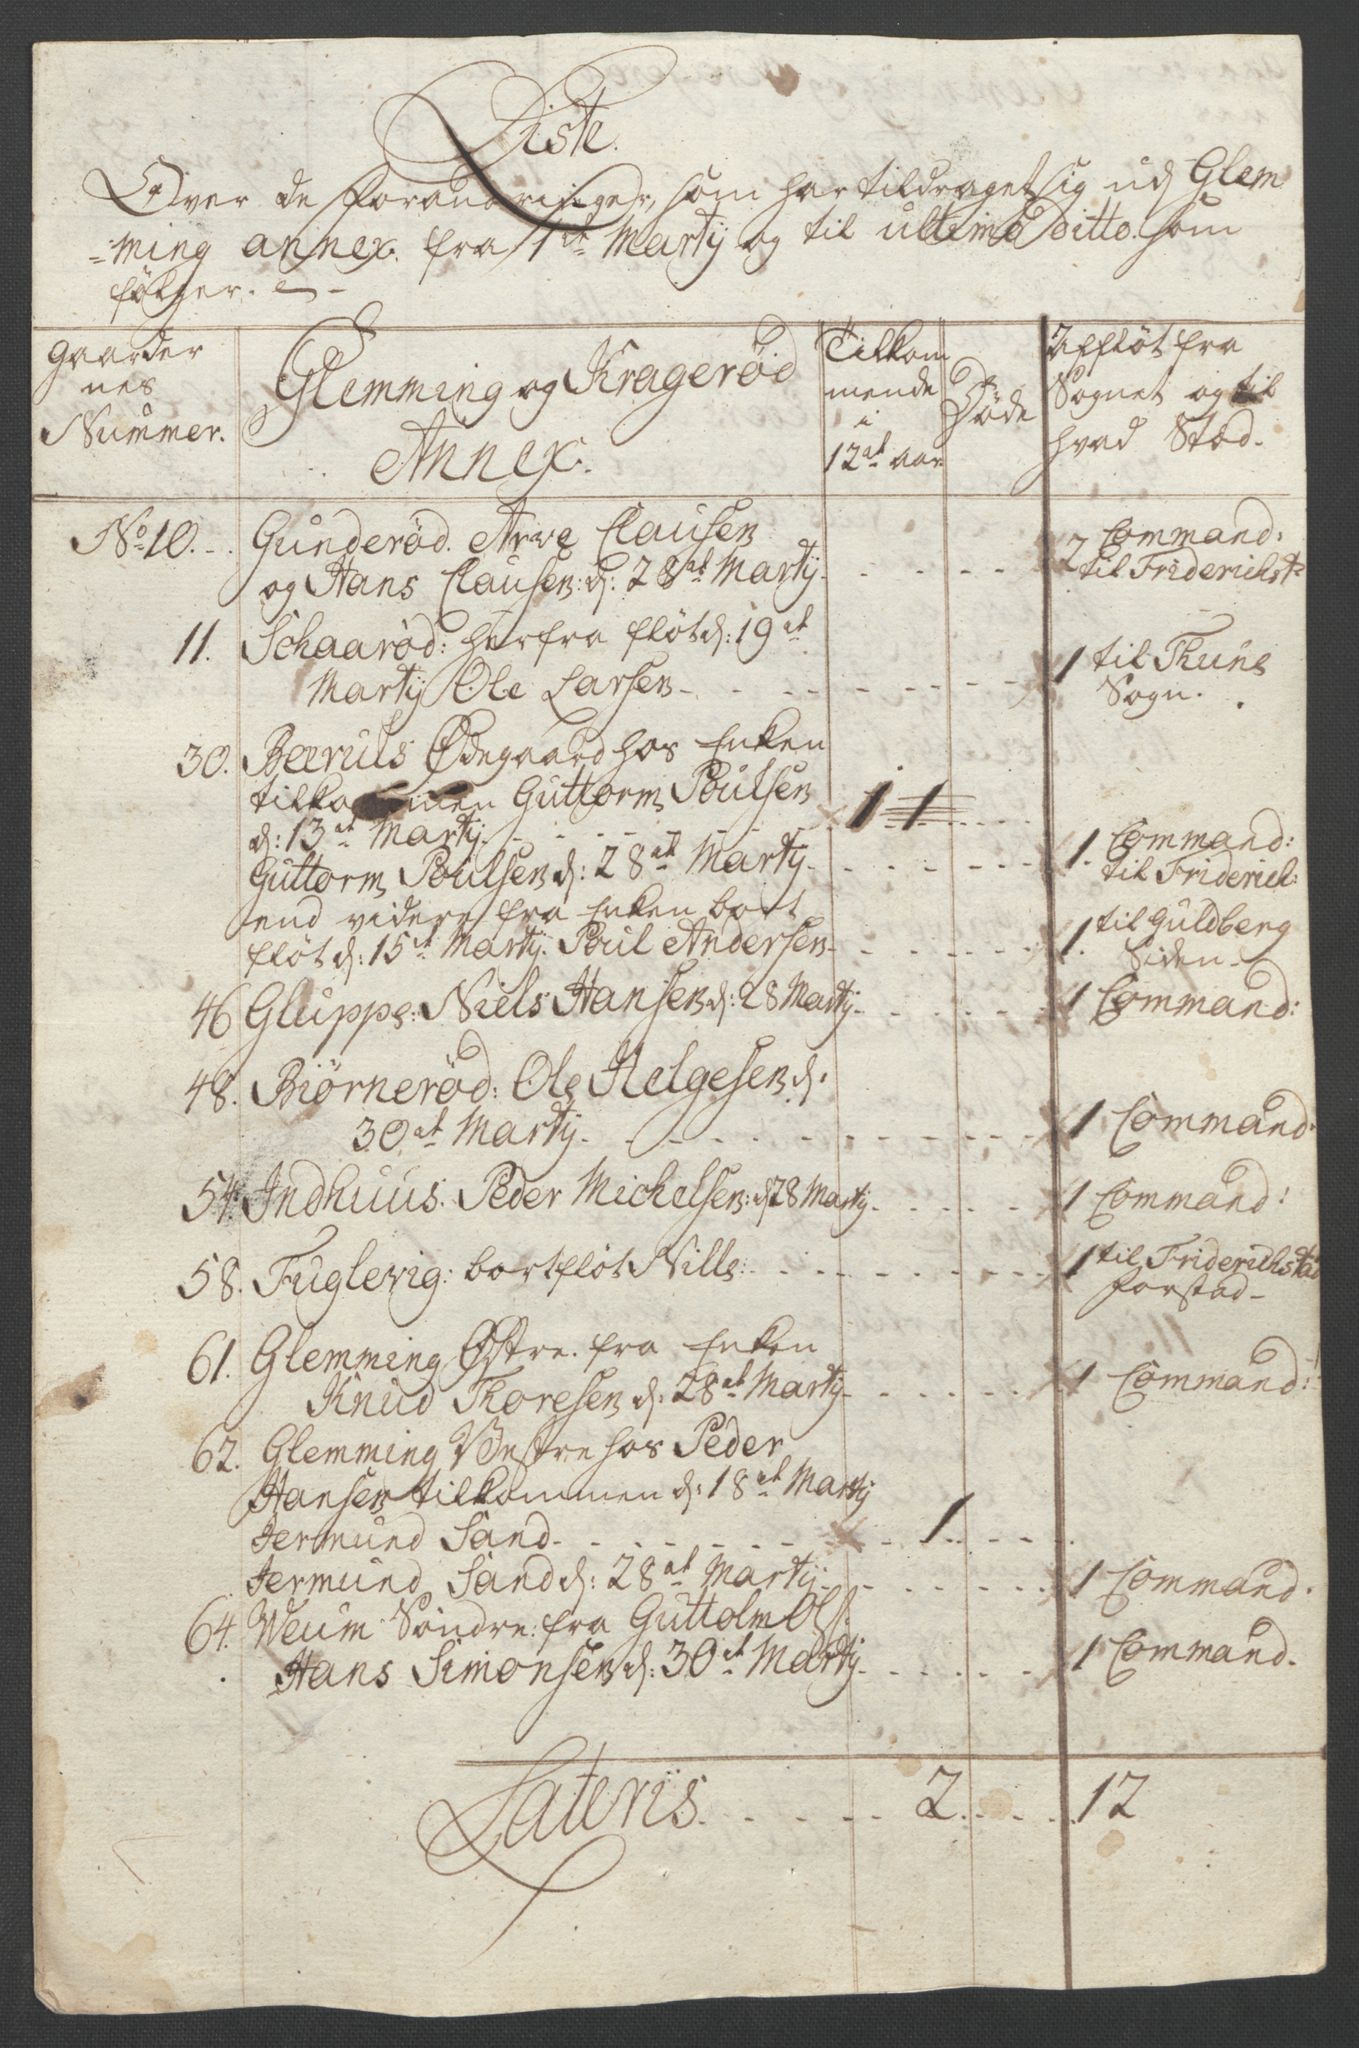 Liste.
Over de forandringer, som har tildraget sig ud Glem
=ming annex. fra 1st Martij og til ultimo Ditto. som
følger.
Gaarder
nes
Nummer.
Glemming og Kragerød
Annex.
Tilkom
mende
i
12at aar
Døde
Afflöt fra
Sognet og til
hvad Stæd.
No 10. Gunderød. Arve Clausen 2 Command:
og Hans Clausen: d: 28at Martij. til Friderichst:
11. Schaarød: herfra flöt d: 19at
Martij Ole Larsen 1 til Thune
Sogn.
30. Bæruls Ødegaard hos Enken
tilkommen Guttorm Poulsen
d: 13at Martij. 1 1
Guttorm Poulsen d: 28at Martij. 1. Command:
til Friderich:
end videre fra Enken bort
flöt d: 15at Martij. Poul Andersen 1. til Guldberg
Siden
46 Gluppe: Niels Hansen d: 28 Martij. 1 Command:
48. Biörneröd: Ole Helgesen d:
30at Martij. 1 Command:
54. Indhuus. Peder Michelsen: d 28 Martij. 1 Command:
58. Fuglevig: bortflöt Nills: 1 til Friderichstad
forstad
61. Glemming Østre. fra Enken
Knud Thoresen d: 28at Martij 1 Command:
62. Glemming Vestre hos Peder
Hansen tilkommen d: 18at Martij
Jermund Sand. 1
Jermund Sand d: 28at Martij. 1 Command.
64. Weum Söndre: fra Guttolm Ols:
Hans Simonsen d: 30at Martij. 1 Command.
Lateris. 2. 12